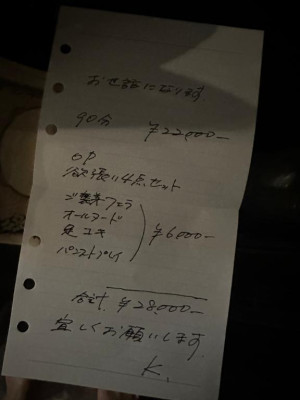 お世話になります
90分 ¥22,000-
OP
欲張り4点セット
フェラ
オールヌード
¥6,000-
パンストプレイ
合計 ¥28,000-
宜しくお願いします
K.